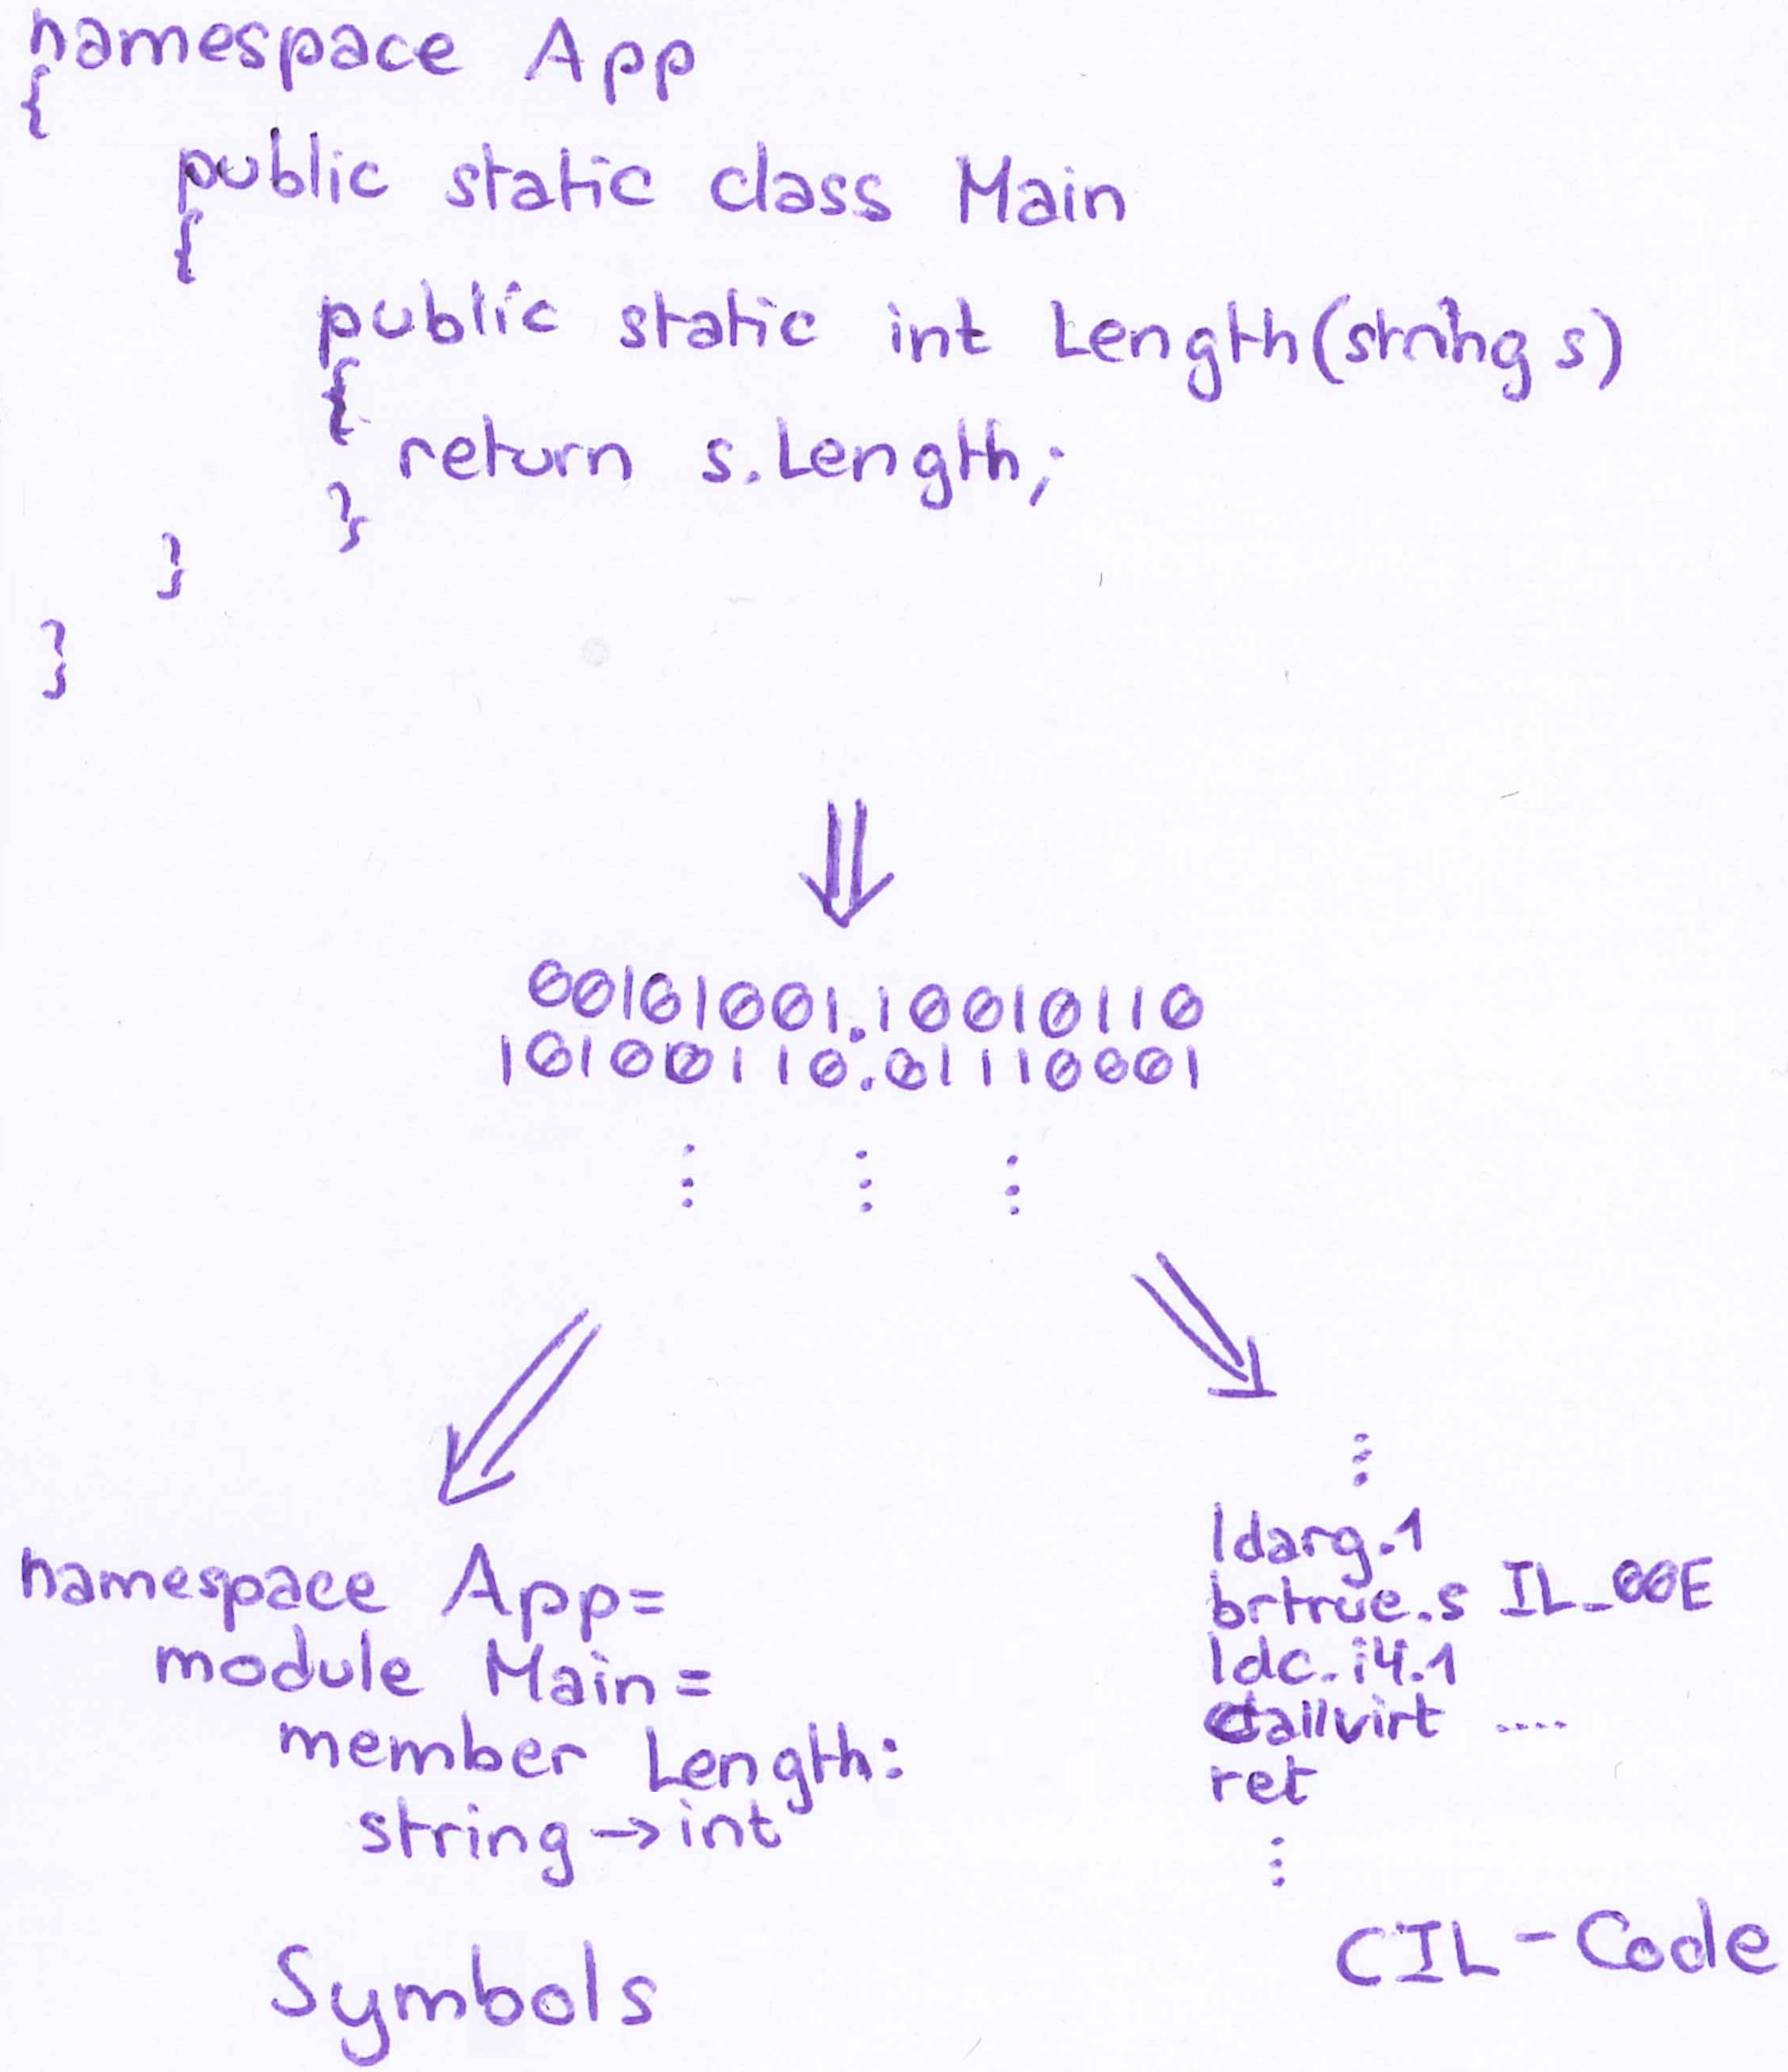 namespace App
{
public static class Main
{
public static int Length(string s)
{
return s.Length;
}
}
}
00101001.10010110
10100110.01110001
namespace App=
module Main=
member Length:
string→int
Symbols
ldarg.1
brtrue.s IL_00E
ldc.i4.1
callvirt ....
ret
CIL-Code